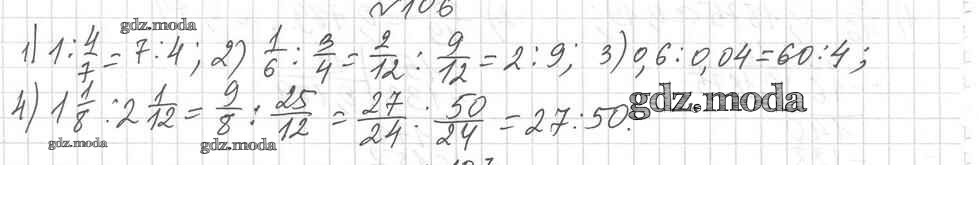 №106
gdz.moda
1) 1 : 4/7 = 7 : 4; 2) 1/6 : 3/4 = 2/12 : 9/12 = 2 : 9; 3) 0,6 : 0,04 = 60 : 4;
4) 1 1/8 : 2 1/12 = 9/8 : 25/12 = 27/24 : 50/24 = 27 : 50.
gdz.moda
gdz.moda
gdz.moda